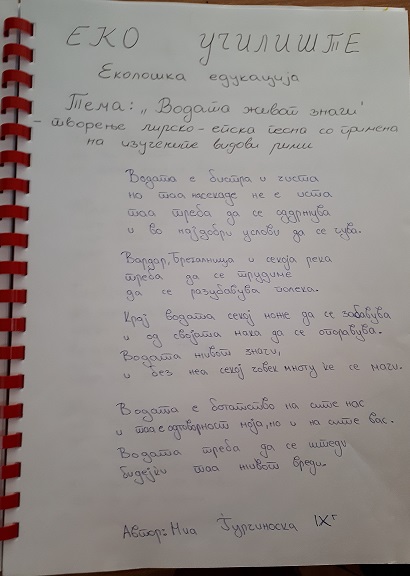 ЕКО УЧИЛИШТЕ
Еколошка едукација
Тема: „Водата живот значи"
- творење лирско - епска песна со примена
на изучените видови рими
Водата е бистра и чиста
но таа насекаде не е иста
таа треба да се одржува
и во најдобри услови да се чува.
Вардар, Брегалница и секоја река
треба да се трудиме
да се разубавува полека.
Крај водата секој може да се забавува
и од својата мака да се опоравува.
Водата живот значи,
и без неа секој човек многу ќе се мачи.
Водата е богатство на сите нас
и таа е одговорност моја, но и на сите вас.
Водата треба да се штеди
бидејки таа живот вреди.
Автор: Миа Ѓурчиноска IXг